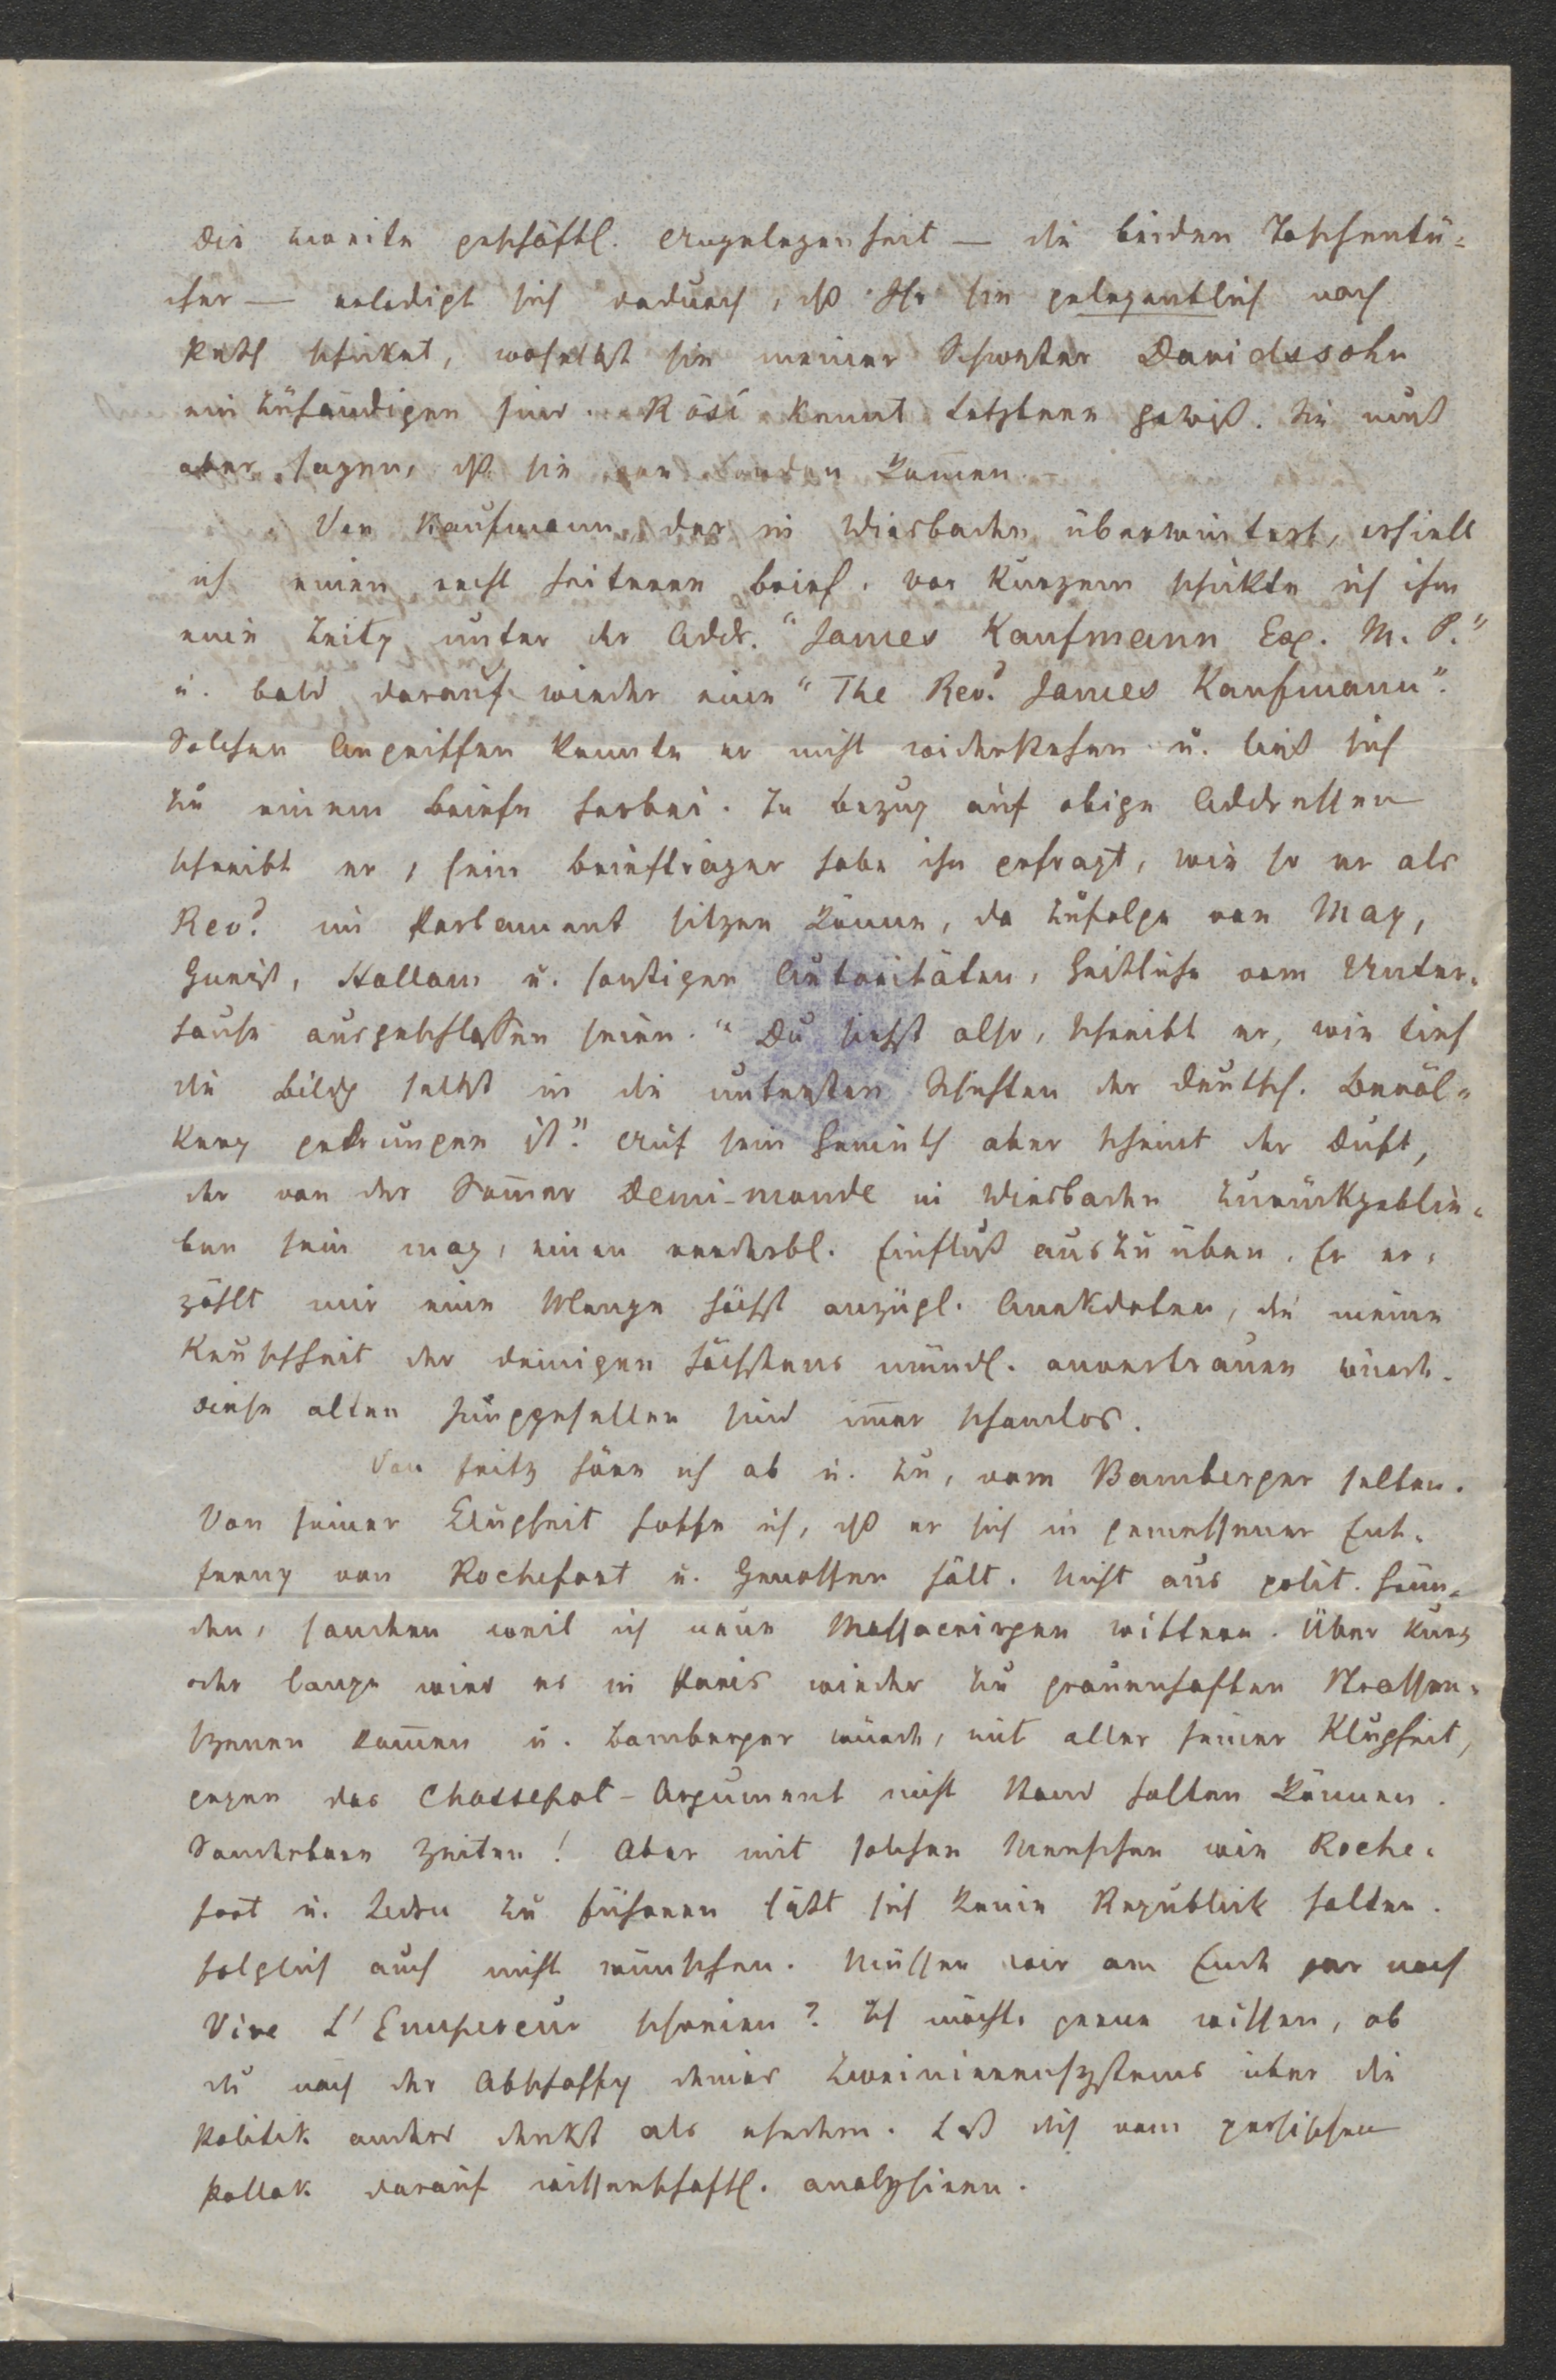 Die zweite geschäftl. Angelegenheit — die beiden Taschentü-
cher — erledigt sich dadurch, dß Ihr sie gelegentlich nach
Pesth schicket, woselbst sie meiner Schwester Davidssohn
einzuhändigen sind. Rösi kennt Letztere gewiß. Sie muß
aber sagen, dß sie von London kom̅en.
Von Kaufmann, der in Wiesbaden überwintert, erhielt
ich einen recht heiteren Brief. Vor Kurzem schickte ich ihm
eine Zeitg unter der Addr. "James Kaufmann Esq. M. P."
u. bald darauf wieder eine "The Revd James Kaufmann".
Solchen Angriffen konnte er nicht widerstehen u. ließ sich
zu einem Briefe herbei. In bezug auf obige Addressen
schreibt er, sein Briefträger habe ihn gefragt, wie so er als
Revd im Parlament sitzen könne, da zufolge von May,
Gneist, Hallam u. sonstigen Autoritäten, Geistliche vom Unter-
hause ausgeschlossen seien. "Du siehst also, schreibt er, wie tief
die Bildg selbst in die untersten Schichten der deutsch. Bevöl-
kerg gedrungen ist". Auf sein Gemüth aber scheint der Duft,
der von der Som̅er Demi-monde in Wiesbaden zurückgeblie-
ben sein mag, einen verderbl. Einfluß auszuüben. Er er-
zählt mir eine Menge höchst anzügl. Anekdoten, die meine
Keuschheit der deinigen höchstens mündl. anvertrauen würde.
Diese alten Junggesellen sind im̅er schamlos.
Von Fritz höre ich ab u. zu, vom Bamberger selten.
Von seiner Klugheit hoffe ich, dß er sich in gemessener Ent-
ferng von Rochefort u. Genossen hält. Nicht aus polit. Grün-
den, sondern weil ich neue Massacrirgen wittere. Über kurz
oder lange wird es in Paris wieder zu grauenhaften Strassen-
szenen kom̅en u. Bamberger würde, mit aller seiner Klugheit,
gegen das Chassepot-Argument nicht Stand halten können.
Sonderbare Zeiten! Aber mit solchen Menschen wie Roche-
fort u. Ledru zu Führern läßt sich keine Republik halten.
folglich auch nicht wünschen. Müssen wir am Ende gar noch
Vive L'Empereur schreien? Ich möchte gerne wissen, ob
du nach der Abschaffg deines Zweinierensystems über die
Politik anders denkst als ehedem. Laß dich vom persischen
Pollak darauf wissenschaftl. analysiren.